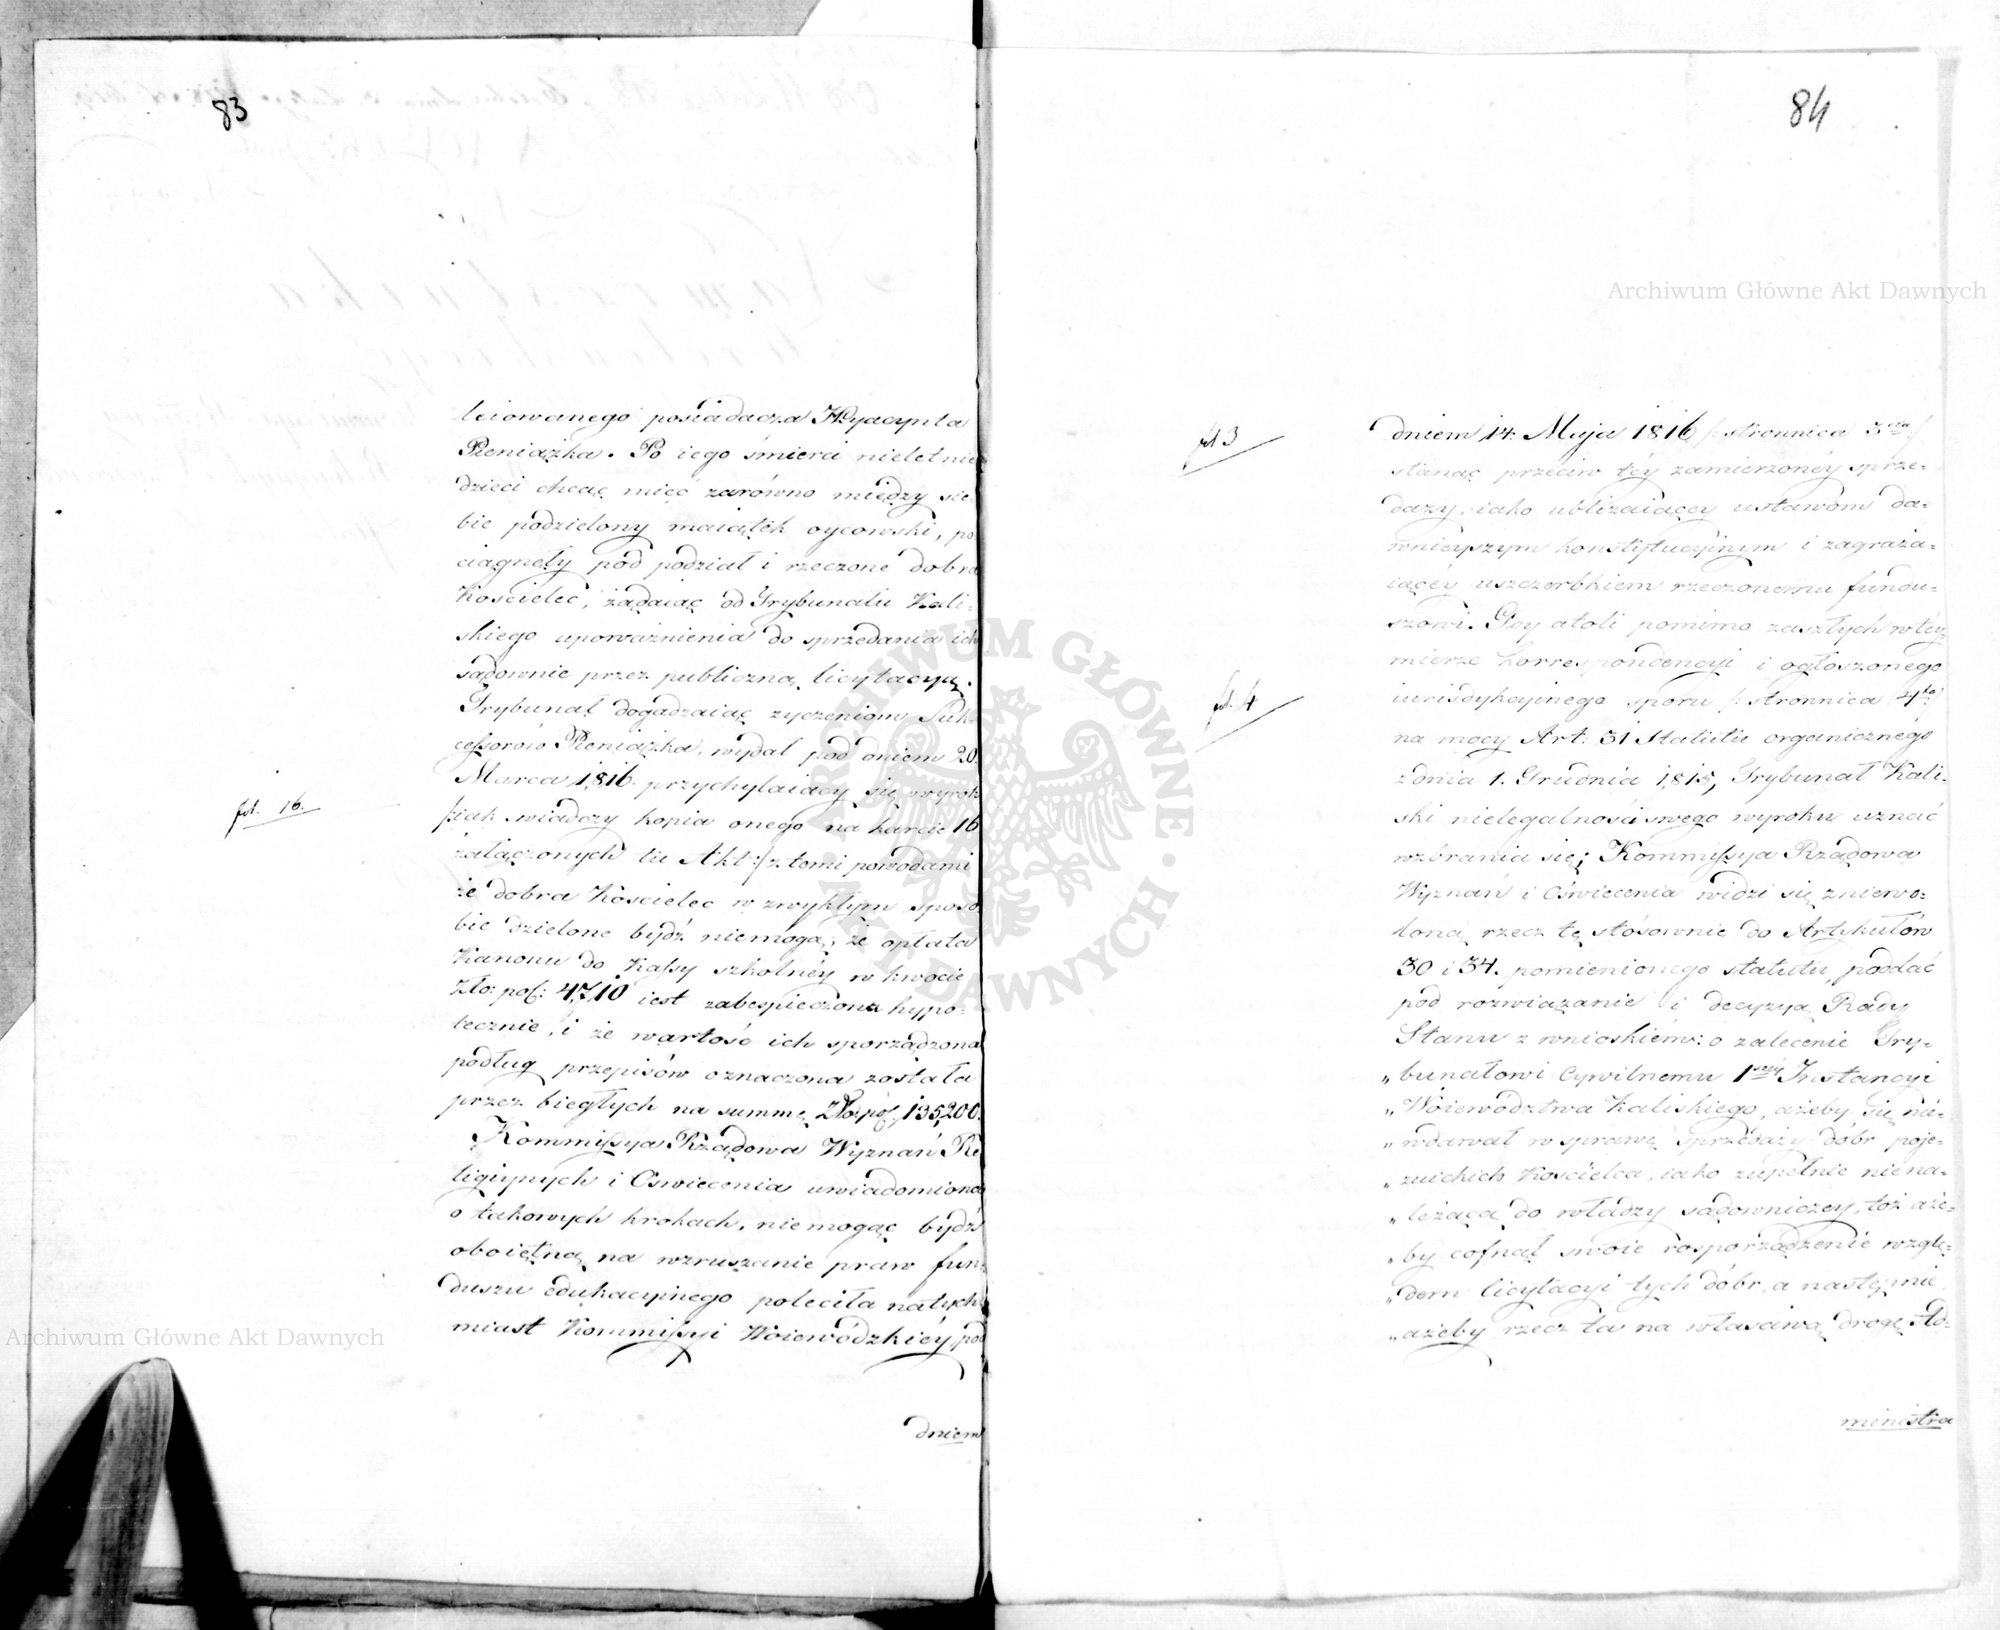 83
leiowanego posiadacza Hyacynta
Pieniążka. Po iego śmierci nieletnie
dzieci chcąc mieć zarówno między sie-
bie podzielony maiątek oycowski, po
ciągnęły pod podział i rzeczone dobra
Kościelec, żądaiąc od Trybunału Kali-
skiego upoważnienia do sprzedania ich
sądownie przez publiczną licytacyą.
Trybunał dogadzaiąc życzeniom Suk-
cessorów Pieniążka, wydał pod dniem 20.
Marca 1816. przychylaiący się wyrok
fol. 16.
/:iak świadczy kopia onego na karcie 16
załączonych tu Akt:/ z temi powodami
że dobra Kościelec w zwykłym sposo
bie dzielone bydź niemogą; że opłata
Kanonu do Kassy szkolnéy w kwocie
Złp: pol: 4,710 iest zabespieczona hypo-
tecznie, i że wartość ich sporządzona
podług przepisów oznaczona została
przez biegłych na summę Złp: pol. 135,200.
Kommissya Rządowa Wyznań Re
ligiynych i Oświecenia uwiadomiona
o takowych krokach, niemogąc bydź
oboiętną na wzruszanie praw fun-
duszu edukacyinego poleciła natych
miast Kommissyi Woiewódzkiéy, pod
dniem
Archiwum Główne Akt Dawnych
84
Archiwum Główne Akt Dawnych
fol 3
dniem 14. Maja 1816 /: stronnica 3cia :/
stanąć przeciw téy zamierzonéy sprze-
daży, iako ubliżaiącey ustawom da-
wnieyszym konstytucyinym i zagraża-
iącéy uszczerbkiem rzeczonemu fundu-
szowi. Gdy atoli pomimo zaszłych w téy-
mierze korrespondencyi i ogłoszonego
fol. 4
iurisdykcyinego sporu /: stronnica 4ta :/
na mocy Art: 31 Statutu organicznego
z dnia 1. Grudnia 1815, Trybunał Kali-
ski nielegalności swego wyroku uznać
wzbrania się; Kommissya Rządowa
Wyznań i Oświecenia widzi się zniewo-
loną rzecz tę stósownie do Artykułów
30 i 34. pomienionego statutu, poddać
pod rozwiązanie i decyzyą Rady
Stanu z wnioskiem: o zalecenie Try-
„bunałowi Cywilnemu 1széy Instancyi
„Woiewództwa Kaliskiego, ażeby się nie-
„wdawał w sprawę sprzedaży dóbr poje-
„zuickich Kościelca, iako zupełnie niena-
„leżącą do władzy sądowniczey, toż aże-
„by cofnął swoie rosporządzenie wzglę-
„dem licytacyi tych dóbr, a następnie
„ażeby rzecz ta na właściwą drogę Ad-
ministra
ARCHIWUM GŁÓWNE · AKT DAWNYCH ·